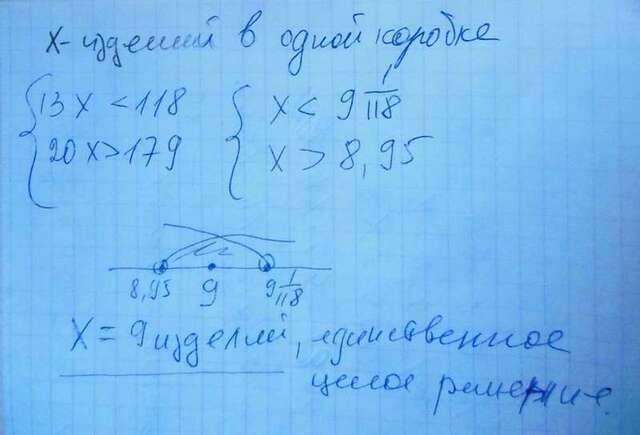 x - изделий в одной коробке
{ 13x < 118 { x < 9 1/118
20x > 179 x > 8,95
8,95 9 9 1/118
x = 9 изделий, единственное
целое решение.